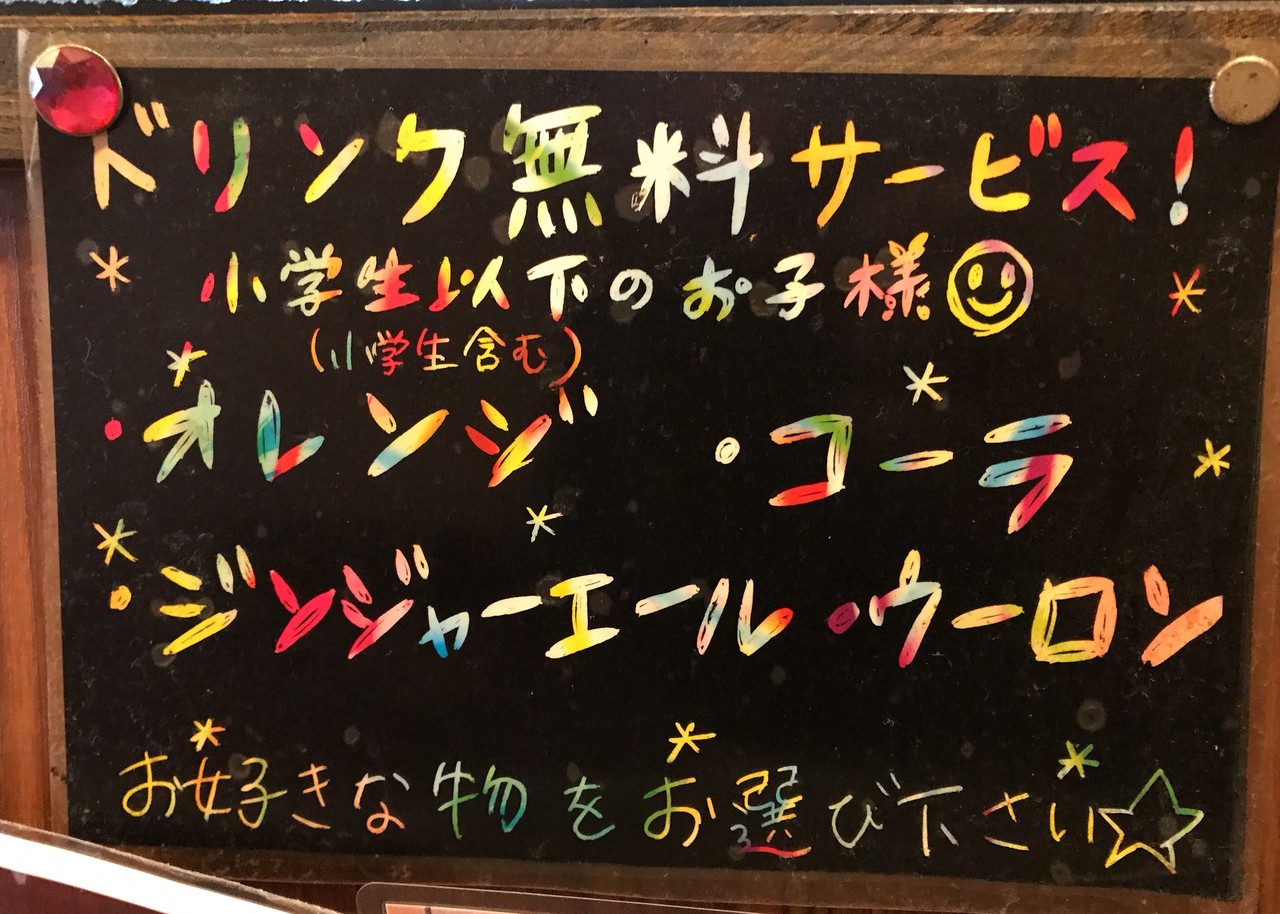 ドリンク無料サービス!
小学生以下のお子様
(小学生含む)
・オレンジ ・コーラ
・ジンジャーエール・ウーロン
お好きな物をお選び下さい☆